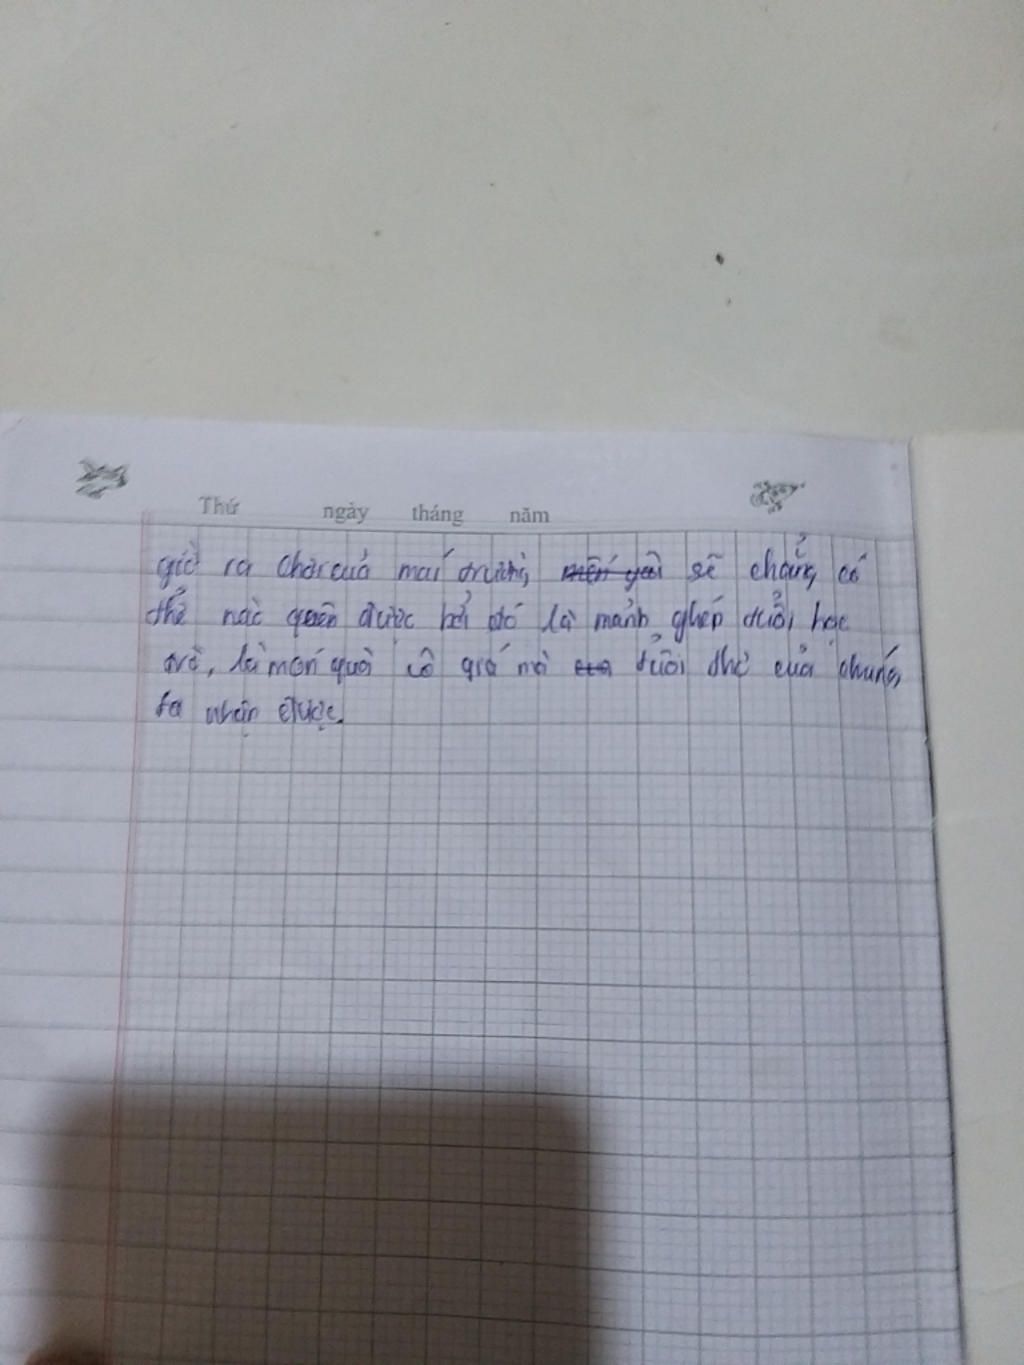 Thứ ngày tháng năm
giờ ra chơi của mái trường mến yêu sẽ chẳng có
thể nào quên được bởi đó là mảnh ghép tuổi học
trò, là món quà vô giá mà tuổi thơ của chúng
ta nhận được.